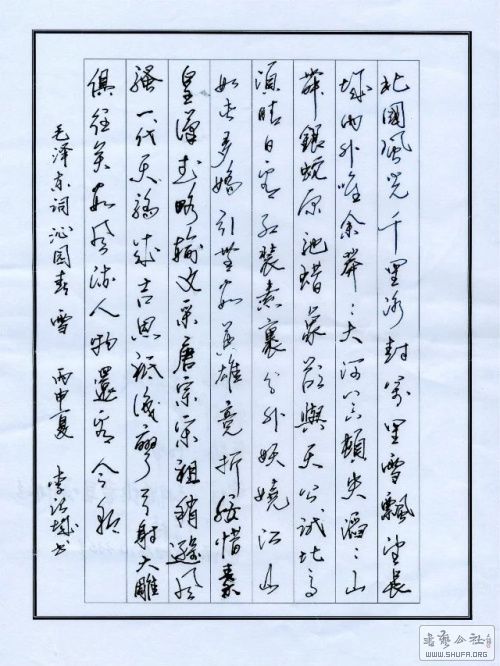 北國風光千里冰封萬里雪飄望長
城內外唯余莽:大河上下頓失滔:山
舞銀蛇原馳蜡象欲與天公試比高
須晴日看紅裝素裹分外妖嬈江山
如此多嬌引無數英雄竞折腰惜秦
皇漢武略輸文采唐宗宋祖稍遜風
騷一代天驕成吉思祗識彎弓射大雕
俱往矣數風流人物還看今朝
毛泽东词沁园春雪 丙申夏 李 书
書藝公社
WWW.SHUFA.ORG